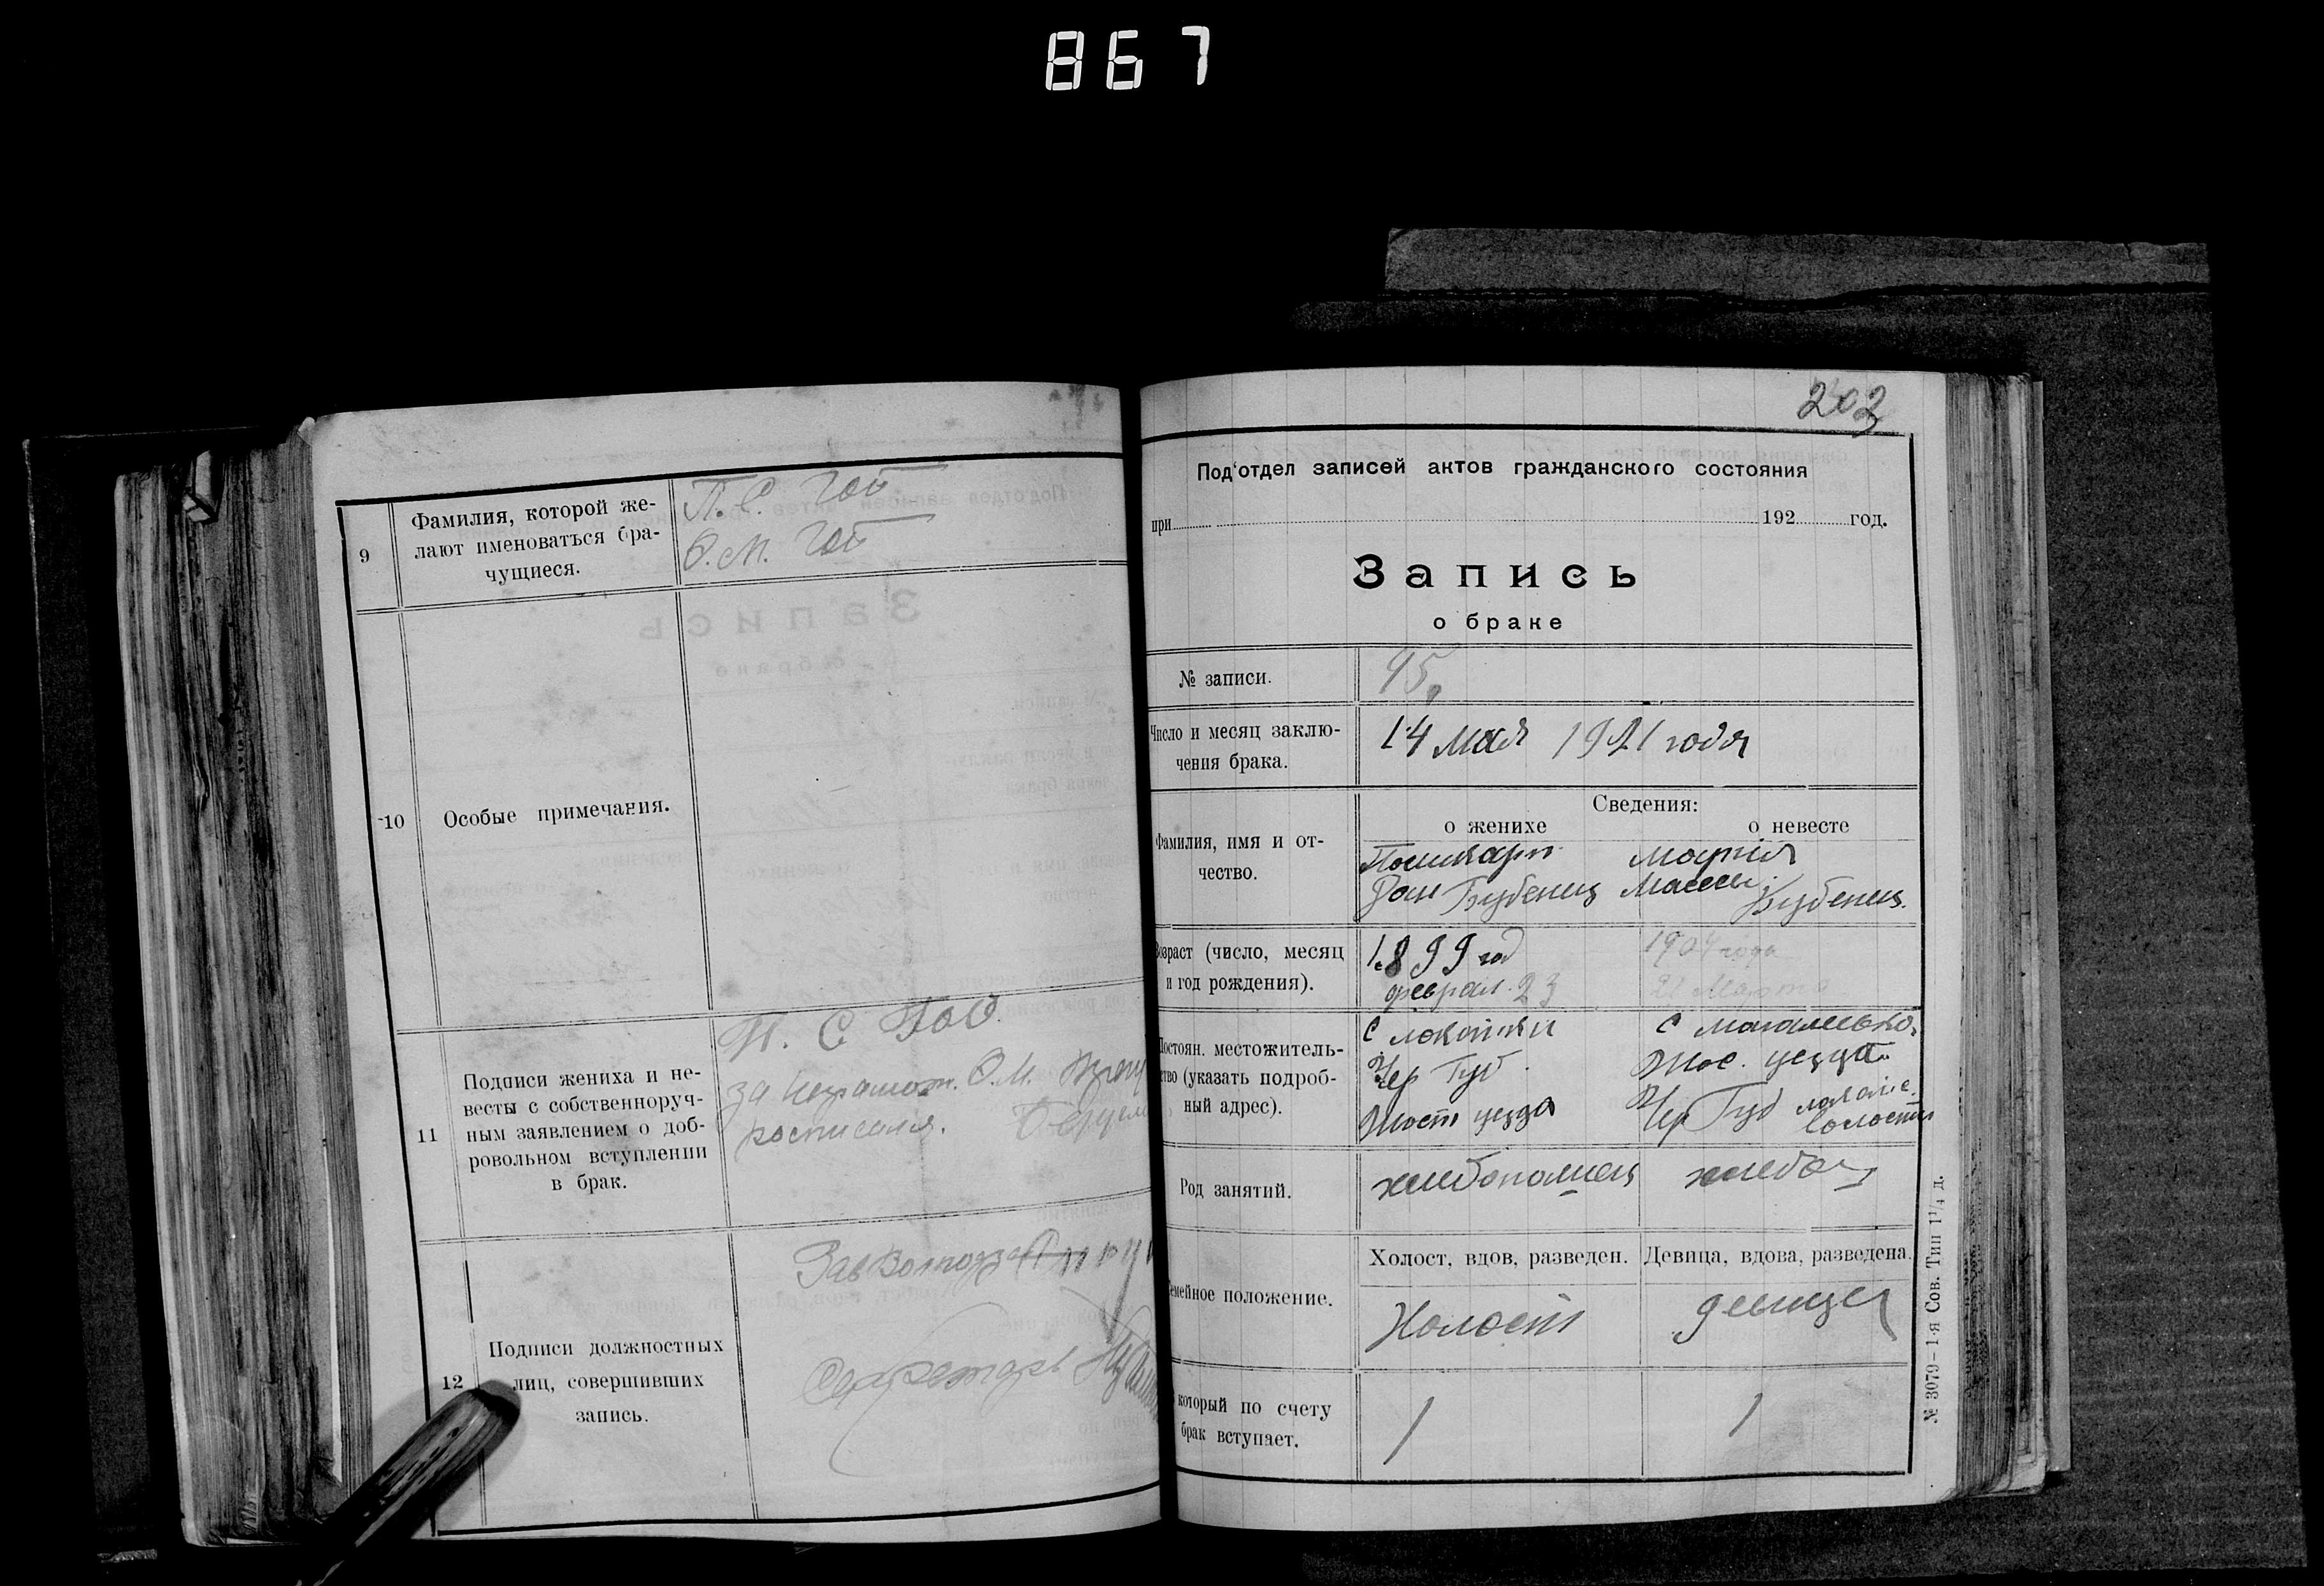 867
9
Фамилия, которой же-
лают именоваться бра-
чущиеся.
П. С. Гой
О. М. Гой
10
Особые примечания.
11
Подписи жениха и не-
весты с собственноруч-
ным заявлением о доб-
ровольном вступлении
в брак.
П. С. Гой
за неграмотн. О. М.
росписался.
12
Подписи должностных
лиц, совершивших
запись.
Зав
Секретарь
203
Под'отдел записей актов гражданского состояния
при 192 год.
Запись
о браке
№ записи.
95
Число и месяц заклю-
чения брака.
14 мая 1921 года
Сведения:
о женихе о невесте
Фамилия, имя и от-
чество.
Поликарп Мария
Бубенец
Бубенец
Возраст (число, месяц
и год рождения).
1899 год 1904 года
феврал 23 21 Марта
Постоян. местожитель-
ство (указать подроб-
ный адрес).
с Локотки с
Чер Губ уезда
уезда Чер Губ
волости
Род занятий.
хлебопашец хлебоп
Семейное положение.
Холост, вдов, разведен. Девица, вдова, разведена.
Холост девица
который по счету
брак вступает.
1 1
№ 3079-1-я Сов. Тип 1¼ д.